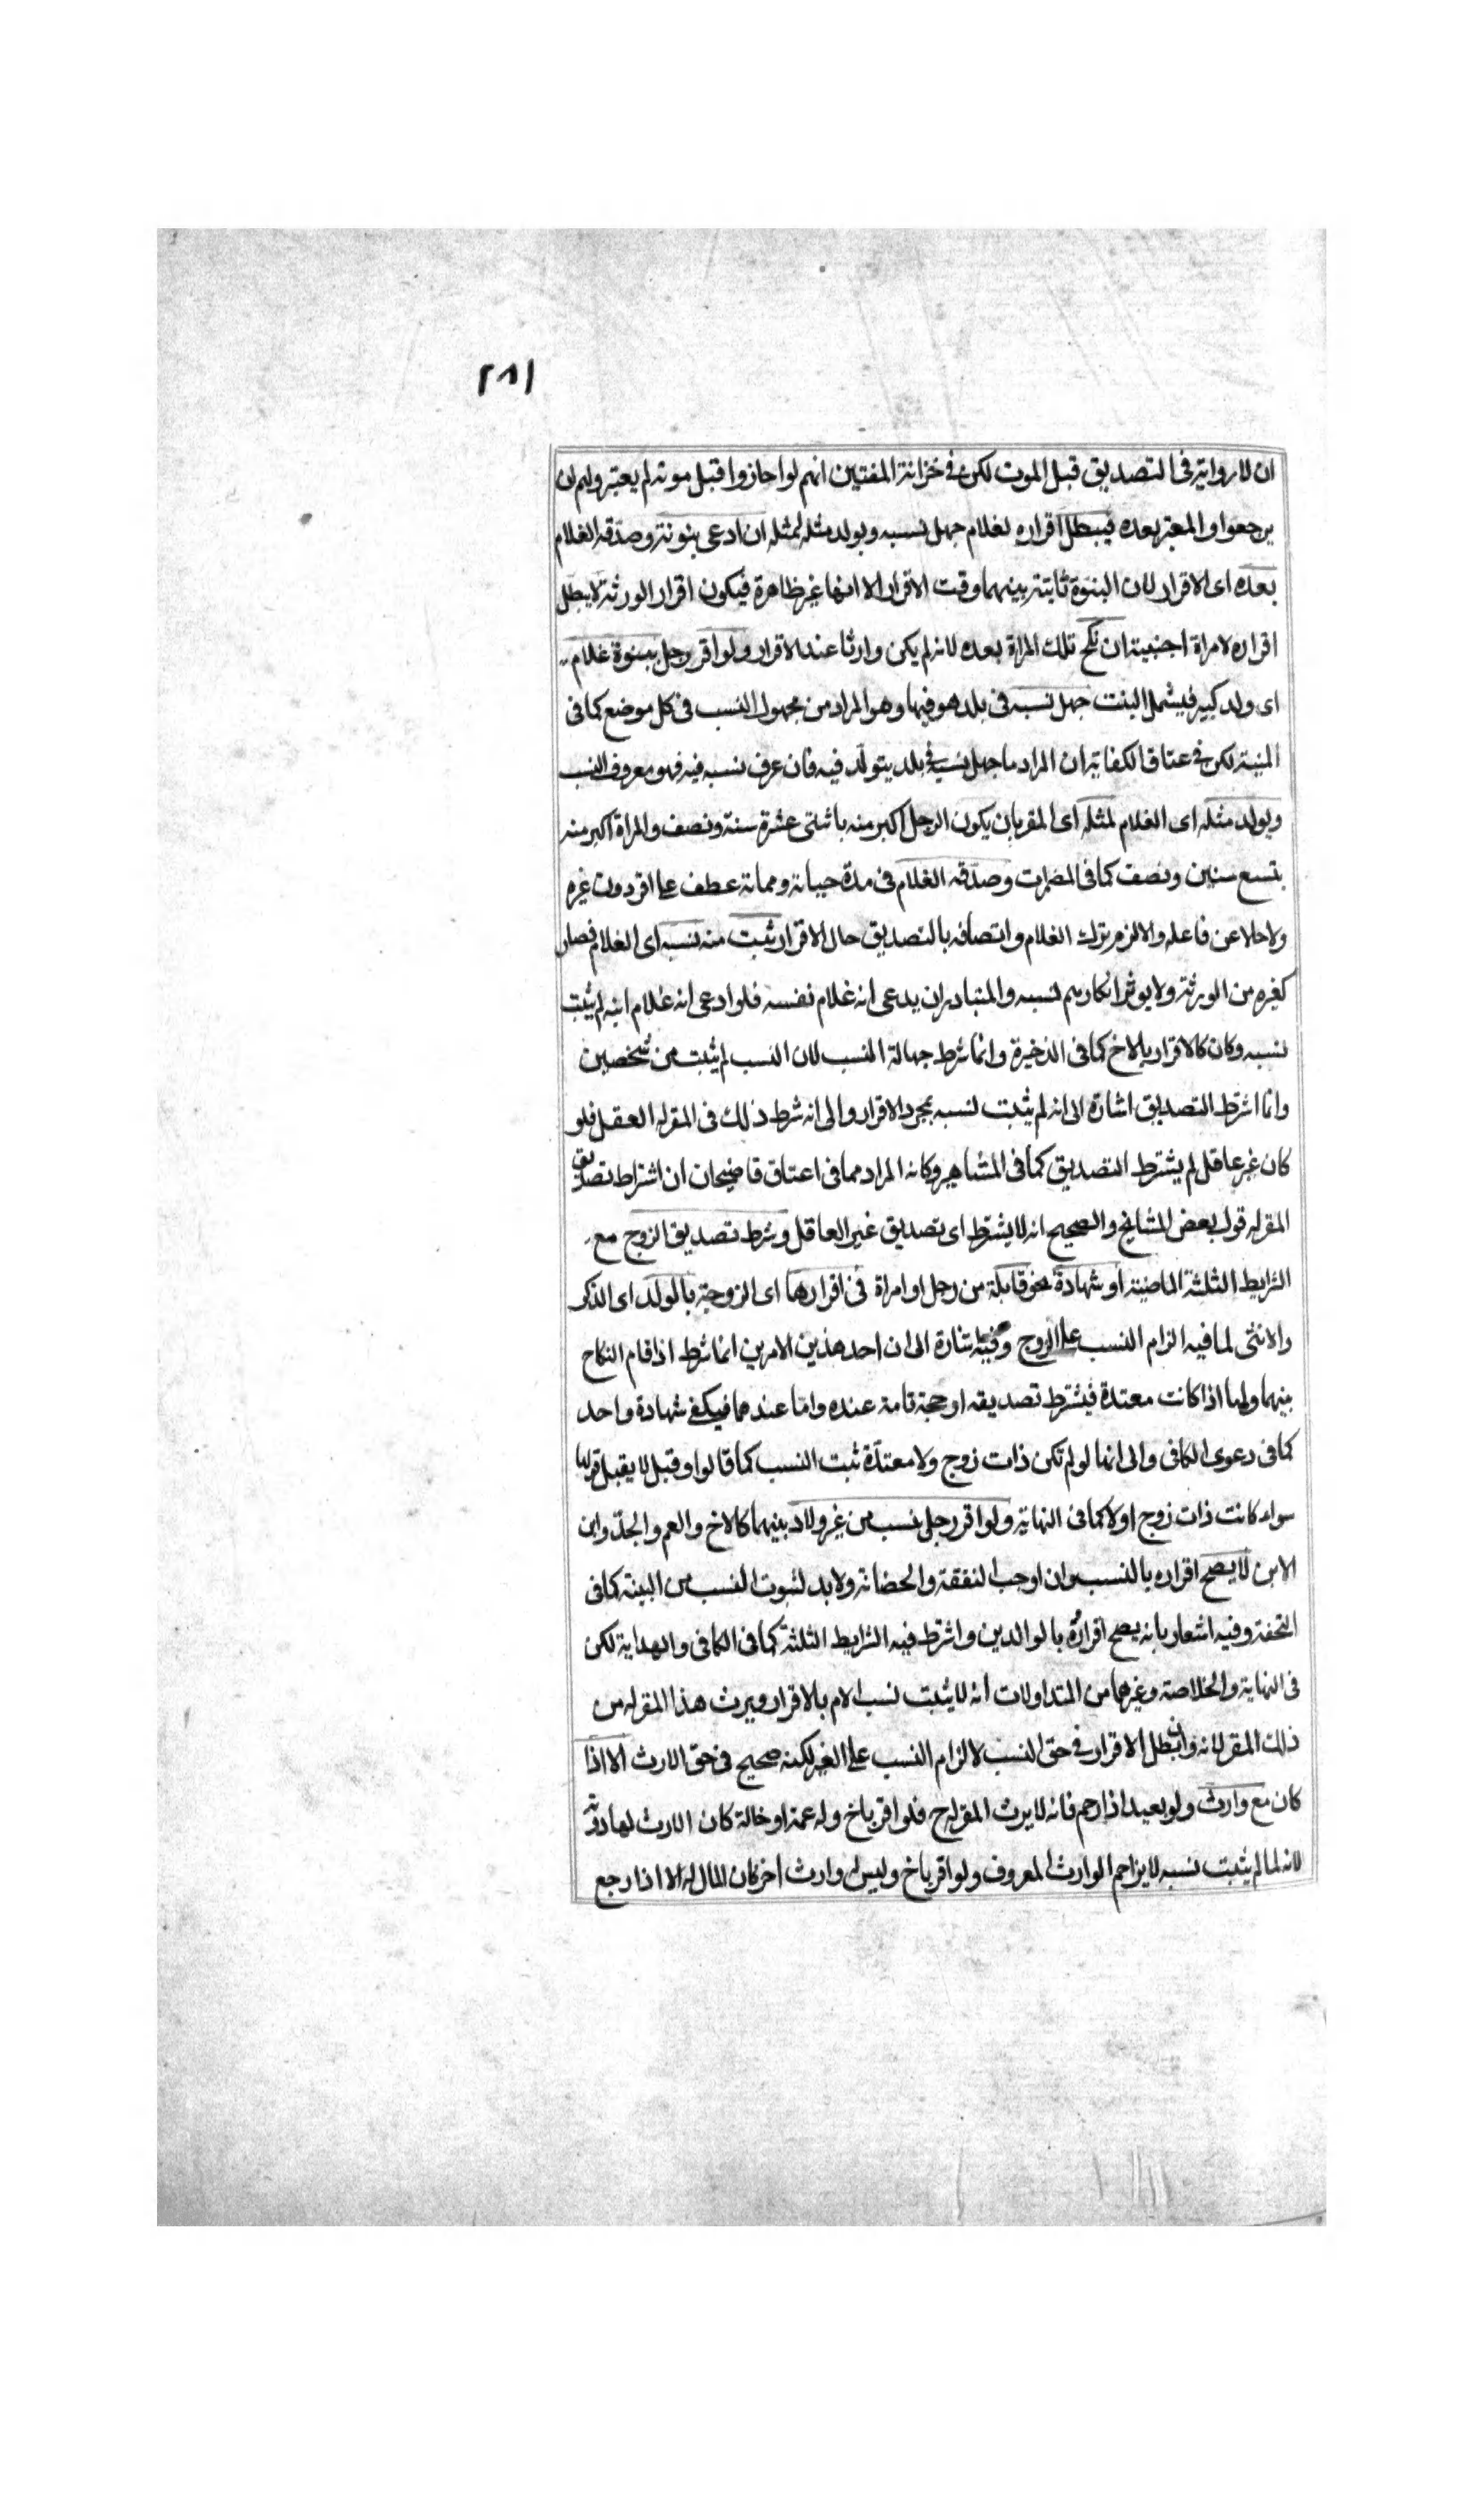 ٢٨١
ان لا رواية فى التصديق قبل الموت لكن فى خزانة المفتين انهم لو اجازوا قبل موته لم يعتبر ولهم ان
يرجعوا والمعتبر بعده فيبطل اقراره لغلام جهل نسبه ويولد مثله لمثله ان ادعى بنوته وصدقه الغلام
بعده اى الاقرار لان البنوة ثابتة بينهما وقت الاقرار الا انها غير ظاهرة فيكون اقرار الورثة لا يبطل
اقراره لامراة اجنبية ان نكح تلك المراة بعده لانه لم يكن وارثا عند الاقرار ولو اقر رجل ببنوة غلام
اى ولد كبير فيشمل البنت جهل نسبه فى بلد هو فيها وهو المراد من مجهول النسب فى كل موضع كما فى
المنية لكن فى عتاق الكفاية ان المراد ما جهل نسبه فى بلد يتولد فيه فان عرف نسبه فيه فهو معروف النسب
ويولد مثله اى الغلام لمثله اى المقر بان يكون الرجل اكبر منه باثنتى عشرة سنة ونصف والمراة اكبر منه
بتسع سنين ونصف كما فى المضمرات وصدقه الغلام فى مدة حياته ومماته عطف على اقر دون غيره
ولا حلا عن فاعله والا لزم ترك الغلام واتصافه بالتصديق حال الاقرار ثبت منه نسبه اى الغلام فصار
كغيره من الورثة ولا يوثر انكارهم نسبه والمتبادر ان يدعى انه غلام نفسه فلو ادعى انه غلام ابنه لم يثبت
نسبه وكان كالاقرار بالاخ كما فى الذخيرة وانما شرط جهالة النسب لان النسب لم يثبت من شخصين
وانما اشترط التصديق اشارة الى انه لم يثبت نسبه بمجرد الاقرار والى انه شرط ذلك فى المقر له العقل فلو
كان غير عاقل لم يشترط التصديق كما فى المشاهير وكانه المراد مما فى اعتاق قاضيخان ان اشتراط تصديق
المقر له قول بعض المشايخ والصحيح انه لا يشترط اى تصديق غير العاقل وشرط تصديق الزوج مع
الشرايط الثلثة الماضية او شهادة نحو قابلة من رجل او امراة فى اقرارها اى الزوجة بالولد اى الذكر
والانثى لما فيه الزام النسب على الزوج وفيه اشارة الى ان احد هذين الامرين انما شرط اذا قام النكاح
بينهما واما اذا كانت معتدة فيشترط تصديقه او حجة تامة عنده واما عندهما فيكفى شهادة واحد
كما فى دعوى الكافى والى انها لو لم تكن ذات زوج ولا معتدة ثبت النسب كما قالوا وقيل لا يقبل قولها
سواء كانت ذات زوج او لا كما فى النهاية ولو اقر رجل نسب من غير ولاد بينهما كالاخ والعم والجد وابن
الابن لا يصح اقراره بالنسب وان اوجب النفقة والحضانة ولا بد لثبوت النسب من البينة كما فى
التحفة وفيه اشعار بانه يصح اقراره بالوالدين واشترط فيه الشرايط الثلثة كما فى الكافى والهداية لكن
فى النهاية والخلاصة وغيرهما من المتداولات انه لا يثبت نسب الام بالاقرار ويرث هذا المقر له من
ذلك المقر لانه وان بطل الاقرار فى حق النسب لالزام النسب على الغير لكنه صحيح فى حق الارث الا اذا
كان مع وارث ولو بعيدا ذا رحم فانه لا يرث المقر له ح فلو اقر باخ وله عمة او خالة كان الارث لها دونه
لانه لما لم يثبت نسبه لا يزاحم الوارث المعروف ولو اقر باخ وليس له وارث اخر كان المال له الا اذا رجع